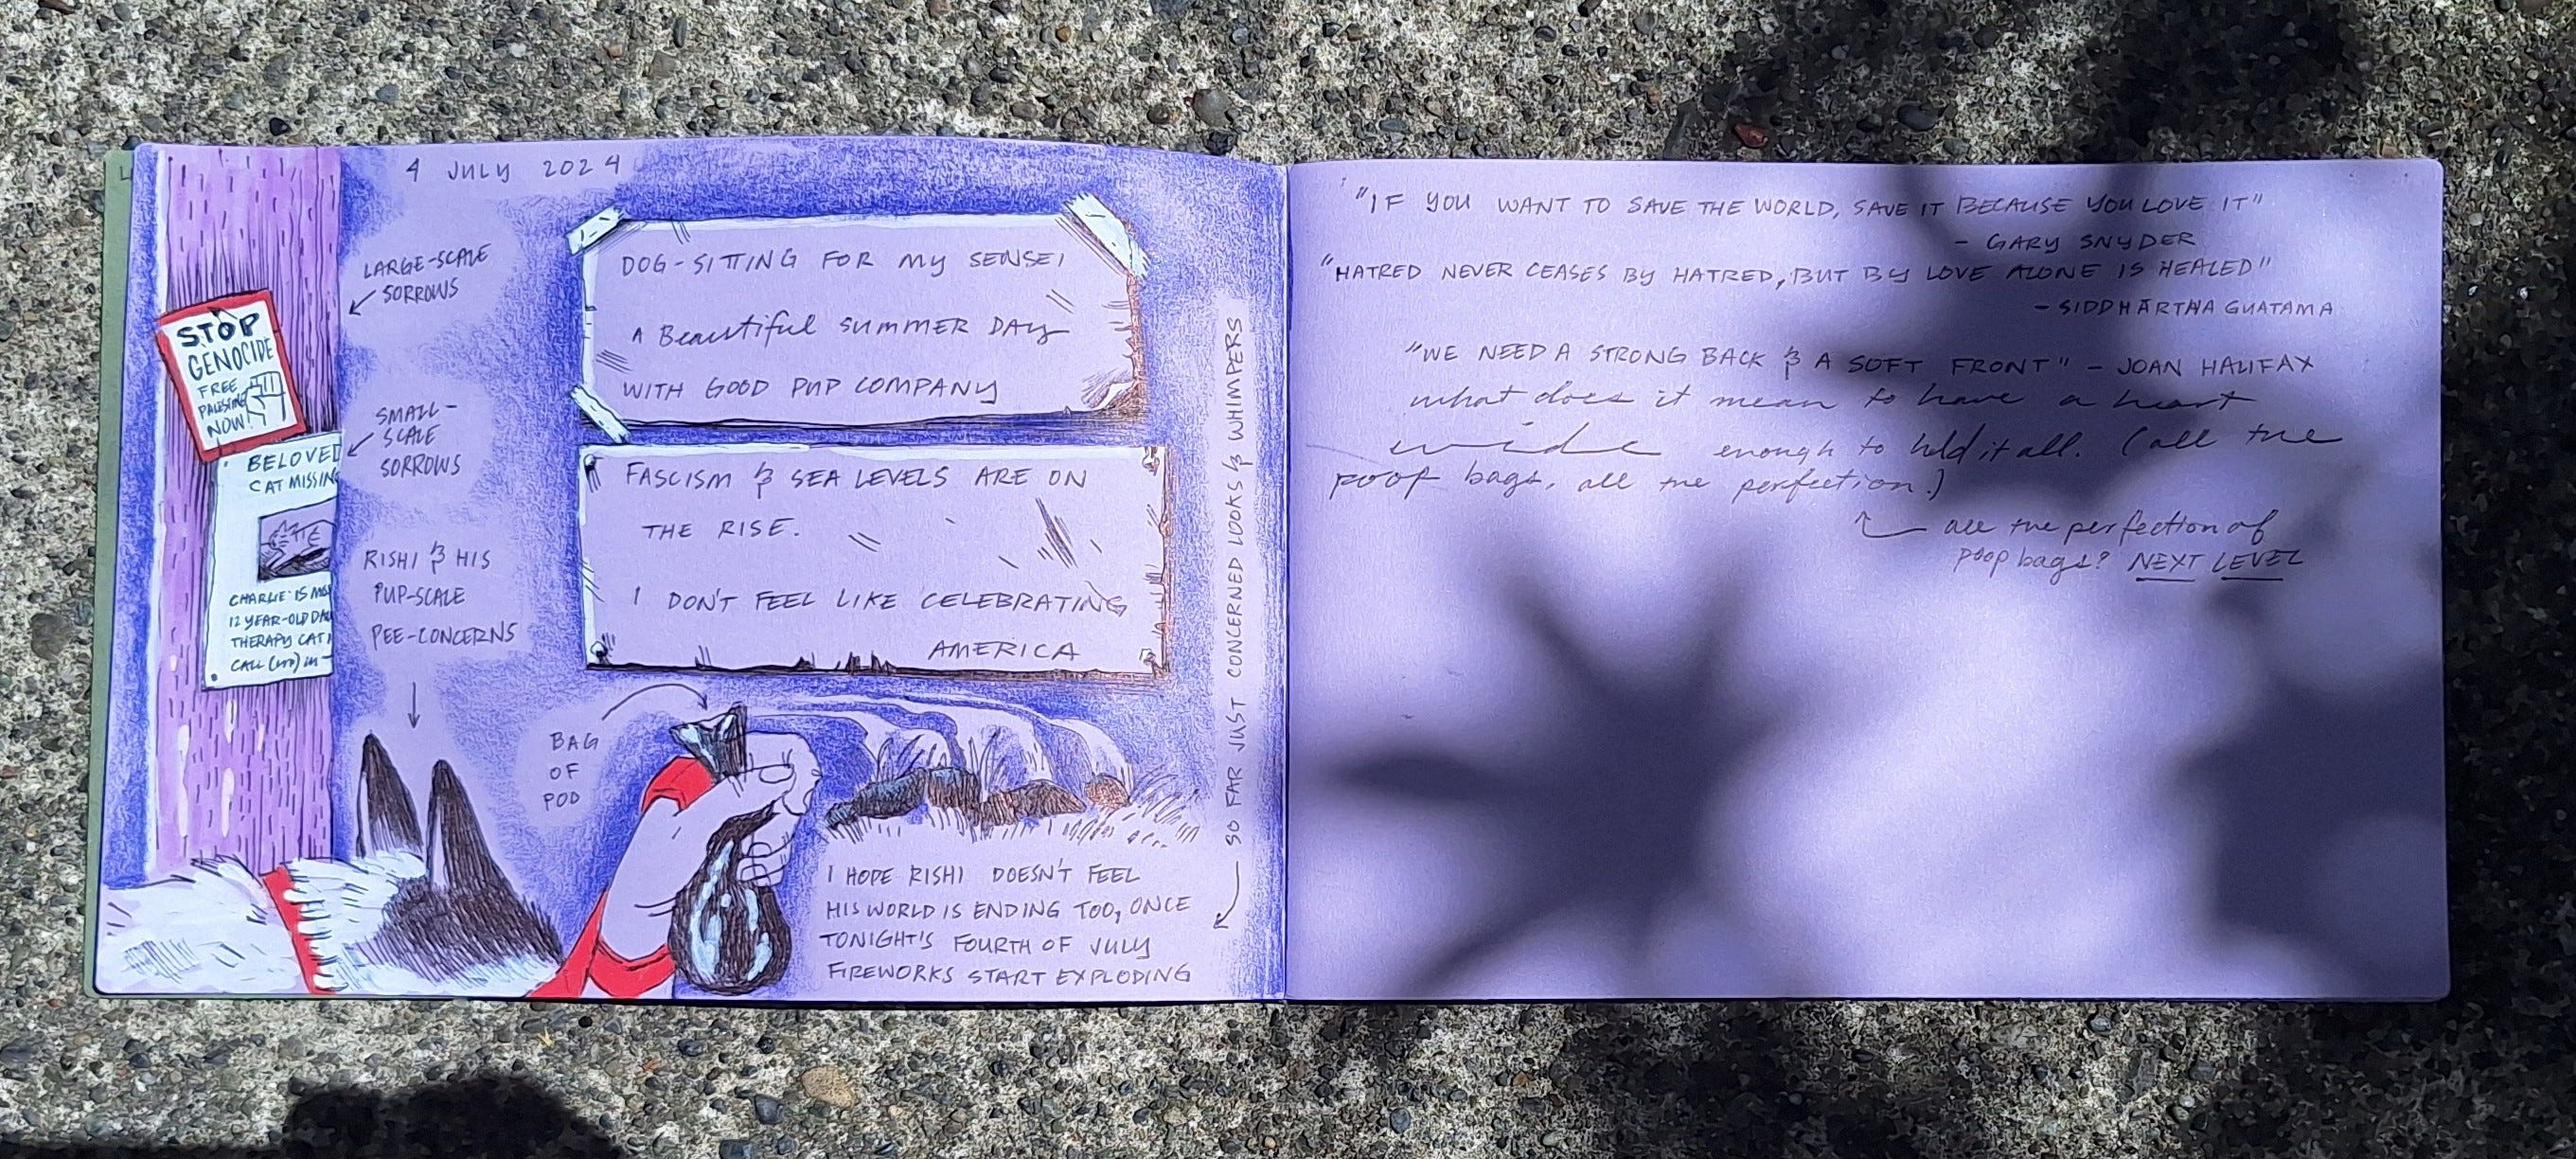 4 JULY 2024
LARGE-SCALE
SORROWS
STOP
GENOCIDE
FREE
PALESTINE
NOW!
SMALL-
SCALE
SORROWS
BELOVED
CAT MISSING
CHARLIE IS
12 YEAR-OLD
THERAPY CAT
CALL
RISHI & HIS
PUP-SCALE
PEE-CONCERNS
DOG-SITTING FOR MY SENSEI
A Beautiful SUMMER DAY
WITH GOOD PUP COMPANY
FASCISM & SEA LEVELS ARE ON
THE RISE.
I DON'T FEEL LIKE CELEBRATING
AMERICA
BAG
OF
POD
I HOPE RISHI DOESN'T FEEL
HIS WORLD IS ENDING TOO, ONCE
TONIGHT'S FOURTH OF JULY
FIREWORKS START EXPLODING
SO FAR JUST CONCERNED LOOKS & WHIMPERS
"IF YOU WANT TO SAVE THE WORLD, SAVE IT BECAUSE YOU LOVE IT"
- GARY SNYDER
"HATRED NEVER CEASES BY HATRED, BUT BY LOVE ALONE IS HEALED"
- SIDDHARTHA GUATAMA
"WE NEED A STRONG BACK & A SOFT FRONT" - JOAN HALIFAX
what does it mean to have a heart
wide enough to hold it all. (all the
poop bags, all the perfection.)
all the perfection of
poop bags? NEXT LEVEL